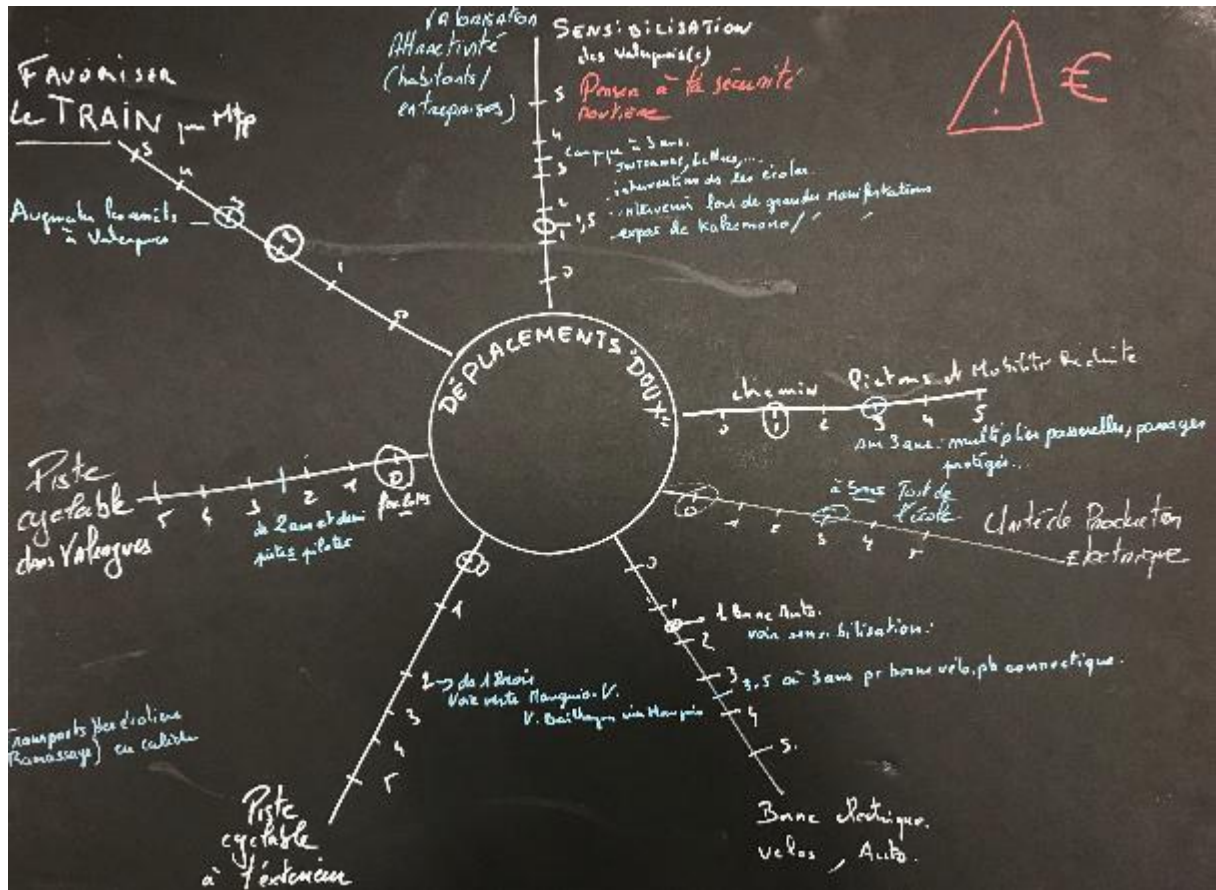 Valorisation
Attractivité
(habitants/
entreprises)
SENSIBILISATION
des Valerguois(e)
Penser à la sécurité
routière
5
4
3
2
1,5
1
0
Campagne à 3 ans.
intervention ds les écoles
intervenir lors de grandes manifestations
expos de Kakemono/
! €
FAVORISER
le TRAIN par
5
4
3
2
1
0
Augmenter
à Valergues
DÉPLACEMENTS "DOUX"
chemin Piétons et Mobilité Réduite
0 1 2 3 4 5
sur 3 ans: multiplier passerelles, passages
protégés...
à 5 ans Toit de
l'école
Unité de Production
Electrique
0 1 2 3 4 5
Piste
cyclable
dans Valergues
5 4 3 2 1 0
ds 2 ans et demi
pistes pilotes
0
1
2 → ds 18 mois
Voie verte Mauguio-V.
V. Baillargues via Mauguio
3
4
5
Piste
cyclable
à l'extérieur
0
1
1 Borne Auto.
voir sensibilisation.
2
3
3,5 à 3 ans pr borne vélo, pb connectique.
4
5
Borne électrique
vélos, Auto.
Transports des écoliers
(Ramassage) en calèche